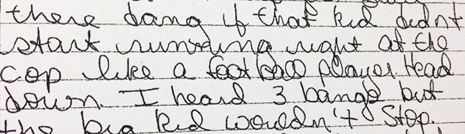 there dang if that kid didn't
start running right at the
cop like a football player head
down. I heard 3 bangs but
the big kid wouldn't stop.